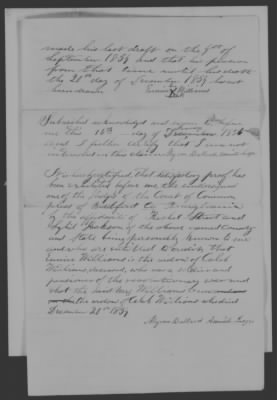 made his last draft on the 9th of
September 1839 and that his pension
from that time until his death
the 28th day of December 1839 has not
been drawn
Eunice X Williams
Subscribed acknowledged and sworn to before
me this 16th day of 1850
and I further certify that I am not
interested in this claim
It is hereby certified that satisfactory proof has
been exhibited before me the undersigned
one of the Judges of the Court of Common
pleas of Bradford Co Pennsylvania
by the affidavits of Street and
Jackson of the above named county
and State being personally known to me
and who are entitled to credit That
Eunice Williams is the widow of Caleb
Williams, deceased, who was a soldier and
pensioner of the revolutionary war and
that the said Mrs Williams
the widow of Caleb Williams who died
December 28th 1839
Myron Ballard